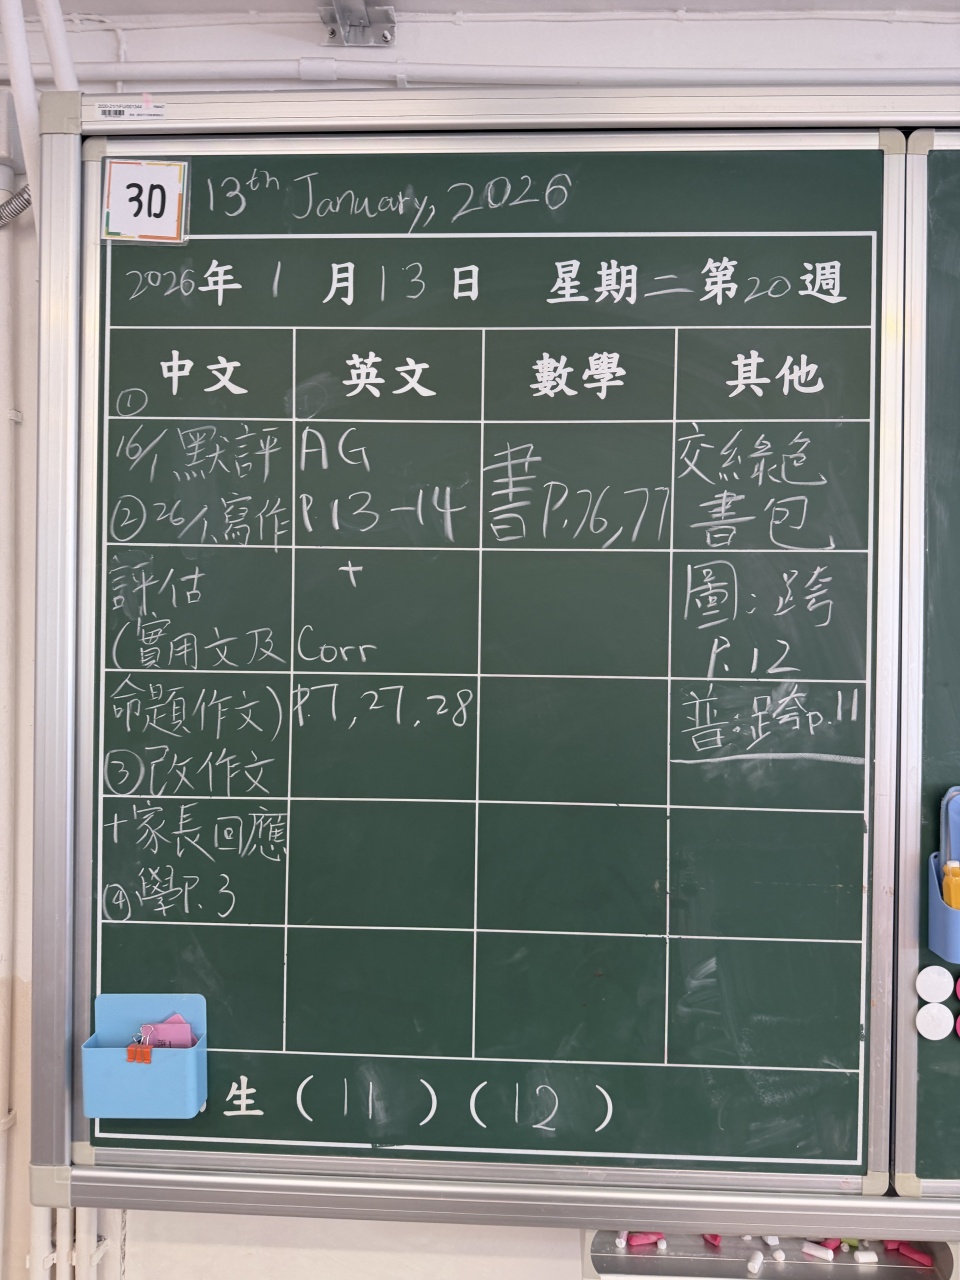 3D
13th January, 2026
2026年 1 月 13 日 星期二第20週
中文
①
16/1 默評
②26/1 寫作
評估
(實用文及
命題作文)
③改作文
+家長回應
④學P.3
英文
AG
P.13-14
+
Corr
P.7, 27, 28
數學
書P.76,77
其他
交綠色
書包
圖:跨
P.12
普:跨p.11
生 ( 11 ) ( 12 )